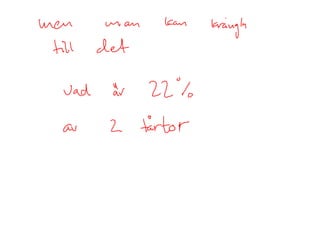 men man kan krångla
till det
vad är 22%
av 2 tårtor